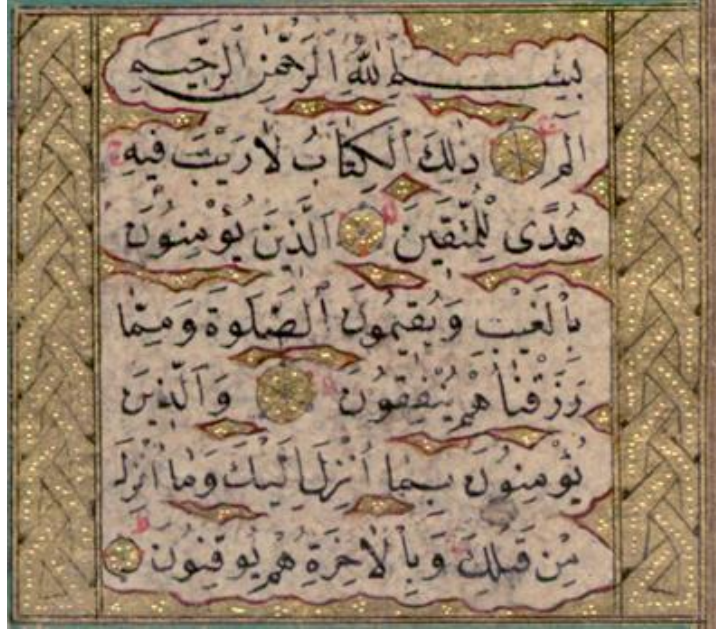 بِسْمِ ٱللَّهِ ٱلرَّحْمٰنِ ٱلرَّحِيمِ
الٓمٓ ذٰلِكَ ٱلْكِتَابُ لَا رَيْبَ فِيهِ
هُدًى لِلْمُتَّقِينَ ٱلَّذِينَ يُؤْمِنُونَ
بِٱلْغَيْبِ وَيُقِيمُونَ ٱلصَّلٰوةَ وَمِمَّا
رَزَقْنَاهُمْ يُنْفِقُونَ وَٱلَّذِينَ
يُؤْمِنُونَ بِمَا أُنْزِلَ إِلَيْكَ وَمَا أُنْزِلَ
مِنْ قَبْلِكَ وَبِٱلْاٰخِرَةِ هُمْ يُوقِنُونَ